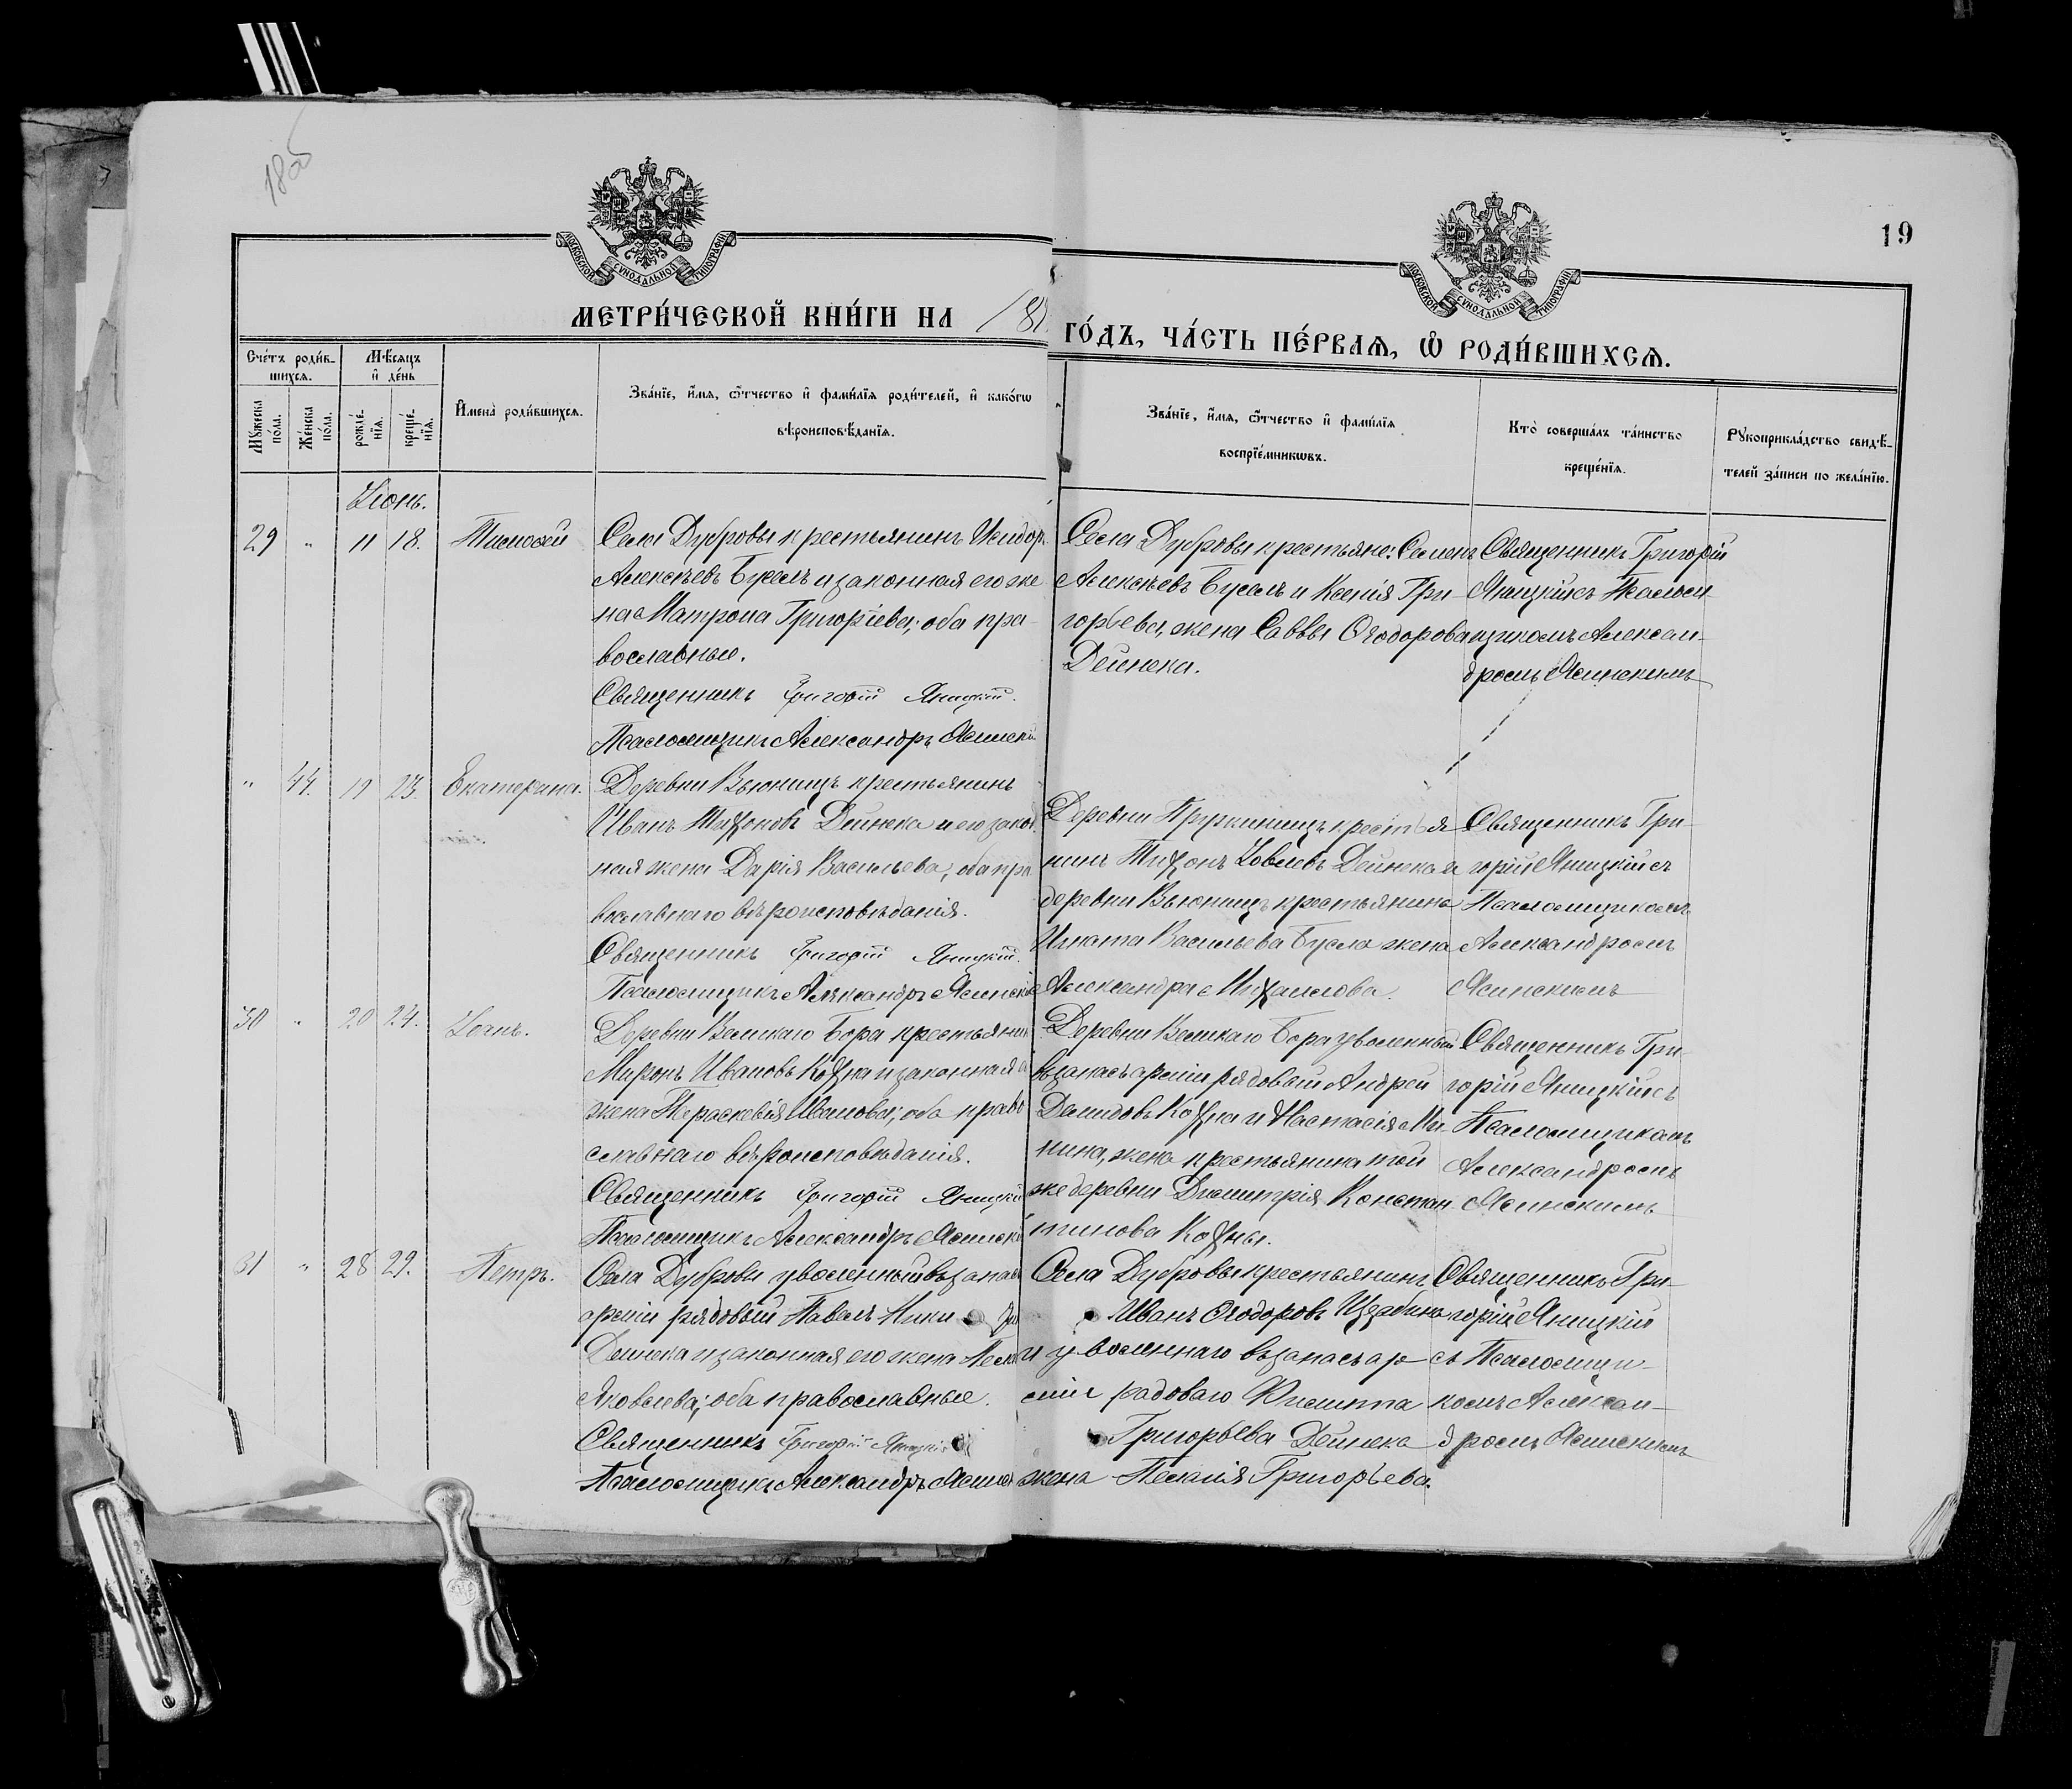 18об
19
МОСКОВСКОЙ СѴНОДАЛЬНОЙ ТИПОГРАФІИ
МОСКОВСКОЙ СѴНОДАЛЬНОЙ ТИПОГРАФІИ
МЕТРИ́ЧЕСКОЙ КНИ́ГИ НА 18
ГО́ДЪ, ЧА́СТЬ ПЕ́РВАѦ, Ѽ РОДИ́ВШИХСѦ.
Сче́тъ роди́в-
шихсѧ.
Мꙋ́жеска по́ла.
Же́нска по́ла.
Мѣ́сѧцъ
и҆ де́нь
рожде́-
нїѧ.
креще́-
нїѧ.
И҆мена̀ роди́вшихсѧ.
Зва́нїе, и҆́мѧ, ѻ҆́тчество и҆ фами́лїѧ роди́телей, и҆ како́гѡ
вѣроисповѣ́данїѧ.
Зва́нїе, и҆́мѧ, ѻ҆́тчество и҆ фами́лїѧ
воспрїе́мникѡвъ.
Кто̀ соверша́лъ та́инство
креще́нїѧ.
Рꙋкоприкла́дство свидѣ́-
телей за́писи по жела́нїю.
Іюнь.
29 " 11 18. Тимофей
Села Дубровы крестьянинъ Исидоръ
Алексѣевъ Буселъ и законная его же
на Матрона Григоріева; оба пра-
вославные.
Священникъ Григорій Яницкій.
Псаломщикъ Александръ Ясинскі
Села Дубровы крестьяне: Семенъ
Алексѣевъ Буселъ и Ксенія Гри-
горьева, жена Саввы Ѳеодорова
Дейнека.
Священникъ Григорій
Яницкій съ Псаломщ
щикомъ Алексан-
дромъ Ясинскимъ
" 44. 19 23. Екатерина.
Деревни Вьюнищъ крестьянинъ
Иванъ Тихоновъ Дейнека и его закон
ная жена Дарія Васильева; оба пра
вославнаго вѣроисповѣданія.
Священникъ Григорій Яницкій.
Псаломщикъ Александръ Ясинскій
Деревни Пружинищъ крестья
нинъ Тихонъ Іовлевъ Дейнека и
деревни Вьюнищъ крестьянина
Игната Васильева Бусла жена
Александра Михаилова.
Священникъ Гри-
горій Яницкій съ
Псаломщикомъ
Александромъ
Ясинскимъ
30 " 20 24. Іоанъ.
Деревни Великаго Бора крестьянин
Миронъ Ивановъ Кохна и законная е
жена Параскевія Иванова; оба право
славнаго вѣроисповѣданія.
Священникъ Григорій Яницкій
Псаломщикъ Александръ Ясинскі
Деревни Великаго Бора уволенный
въ запасъ арміи рядовой Андрей
Демидовъ Кохна и Настасія Ми-
нина, жена крестьянина той
же деревни Димитрія Констан-
тинова Кохны.
Священникъ Гри-
горій Яницкій съ
Псаломщикомъ
Александромъ
Ясинскимъ
31 " 28 29. Петръ.
Села Дубровы уволенный въ запасъ
арміи рядовый Павелъ Ники
Дейнека и законная его жена
Яковлева; оба православные.
Священникъ Григорій Яницкій
Псаломщикъ Александръ Ясинск
Села Дубровы крестьянинъ
Иванъ Ѳеодоровъ
и уволеннаго въ запасъ ар-
міи рядоваго
Григорьева Дейнека
жена Пелагія Григорьева.
Священникъ Гри-
горій Яницкій
съ Псаломщи-
комъ Алексан-
дромъ Ясинскимъ